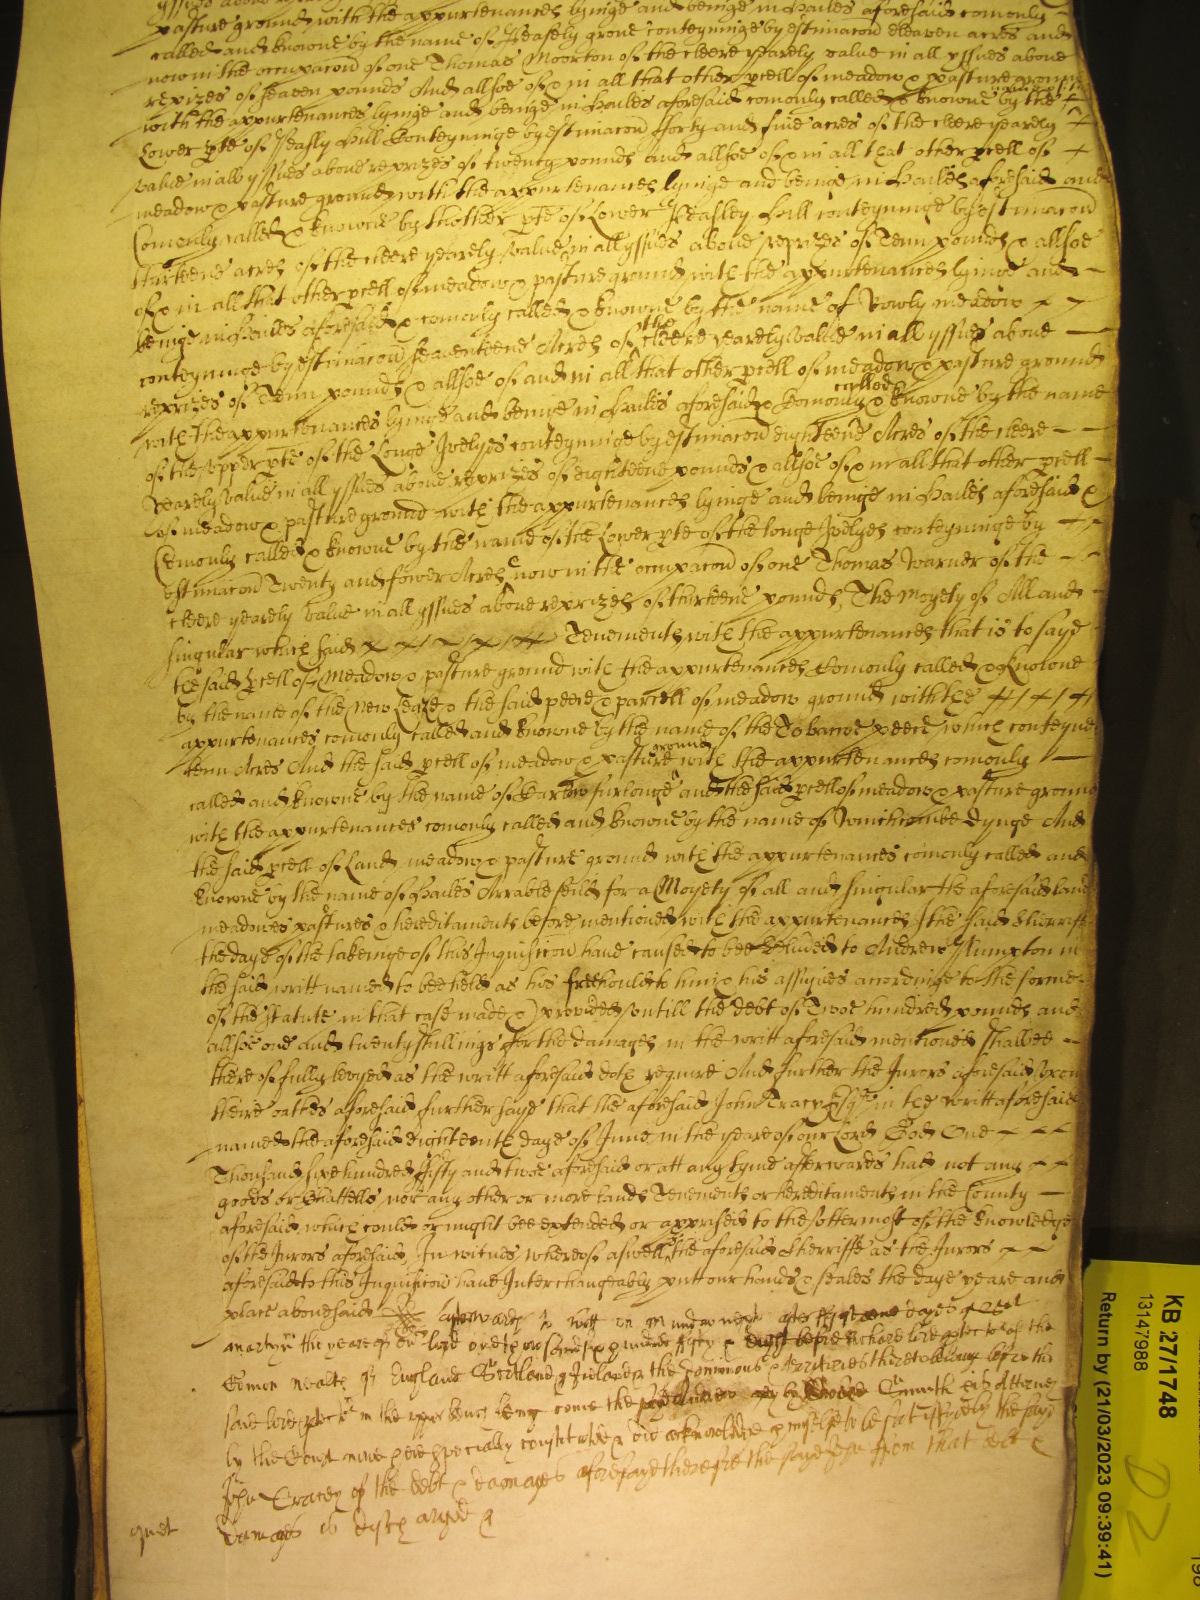 pasture ground with the appurtenances lyinge and beinge in Hailes aforesaid comonly
called and knowne by the name of Heasely grove conteyninge by estimacon eleaven acres and
now in the occupacon of one Thomas Moorton of the cleere yearely value in all yssues above
reprizes of seaven pounds And allsoe of & in all that other pcell of meadow & pasture ground
with the appurtenances lyinge and beinge in Hailes aforesaid comonly called & knowne by the
Lower pte of Heasly Hill Conteyninge by estimacon fforty and five acres of the cleere yearely
value in all yssues above reprizes of twenty pounds and allsoe of & in all that other pcell of
meadow & pasture ground with the appurtenances lyinge and beinge in Hailes aforesaid and
Comonly called & knowne by thother pte of Lower Heasley Hill conteyninge by estimacon
thirteene acres of the cleere yearely value in all yssues above reprizes of Tenn pounds & allsoe
of & in all that other pcell of meadow & pasture ground with the appurtenances lyinge and
beinge in Hailes aforesaid & comonly called & knowne by the name of Rowly meadow
conteyninge by estimacon seaventeene Acres of the cleere yearely value in all yssues above
reprizes of Tenn pounds & allsoe of and in all that other pcell of meadow & pasture ground
with the appurtenances lyinge and beinge in Hailes aforesaid & Comonly called & knowne by the name
of the upper pte of the Longe conteyninge by estimacon eighteene Acres of the cleere
yearely value in all yssues above reprizes of eighteene pounds & allsoe of & in all that other pcell
of meadow & pasture ground with the appurtenances lyinge and beinge in Hailes aforesaid &
Comonly called & knowne by the name of the Lower pte of the longe conteyninge by
estimacon Twenty and fower Acres now in the occupacon of one Thomas Warner of the
cleere yearely value in all yssues above reprizes of thirteene pounds, The Moyety of All and
singular which said Tenements with the appurtenances that is to saye
the said pcell of Meadow & pasture ground with the appurtenances Comonly called & knowne
by the name of the New Leaze & the said peece & parcell of meadow ground with the
appurtenances comonly called and knowne by the name of the Tobaccoe peece which conteyne
tenn Acres And the said pcell of meadow & pasture ground with the appurtenances comonly
called and knowne by the name of furlonge and the said pcell of meadow & pasture ground
with the appurtenances comonly called and knowne by the name of Winchcombe And
the said pcell of Land meadow & pasture ground with the appurtenances comonly called and
knowne by the name of Hailes Arrable feild for a Moyety of all and singular the aforesaid land
meadowes pastures & hereditaments before mentioned with the appurtenances I the said Sherriffe
the daye of the takeinge of this Inquisicon have caused to bee to Andrew in
the said writt named to bee held as his freehould to him & his assignes accordinge to the forme
of the Statute in that case made & provided untill the debt of Twoe hundred pounds and
allsoe one and twenty shillings for the damages in the writt aforesaid mentioned shallbee
thereof fully levyed as the writt aforesaid doth require And further the Jurors aforesaid upon
theire oathes aforesaid further saye that the aforesaid John Tracy Esqr in the writt aforesaid
named the aforesaid Eighteenth daye of June in the yeare of our Lord God One
Thousand sixe hundred fifty and twoe aforesaid or att any tyme afterwards had not any
goods or Chattells nor any other or more lands Tenements or hereditaments in the County
aforesaid which could or might bee extended or apprised to the uttermost of the knowledge
of the Jurors aforesaid, In witnes whereof aswell the aforesaid Sherriffe as the Jurors
aforesaid to this Inquisicon have Interchangeably putt our hands & seales the daye yeare and
place abovesaid afterwards to witt on next after dayes of
martyr the yeare of our lord one thousand six hundred fifty & eight before Richard lord protector of the
Comon wealth of England Scotland & Ireland & the Dominions & territories thereto belonging before the
same lord protector in the upper Bench being come the sayd Andrew by Smith his Attorney
by the Court here specially constituted & did acknowledge himselfe to be satisfyed by the sayd
John Tracey of the debt & damages aforesayd therefore the sayd John from that debt &
damages is dyscharged &
quiet
KB 27/1748
13147988
Return by (21/03/2023 09:39:41)
D2